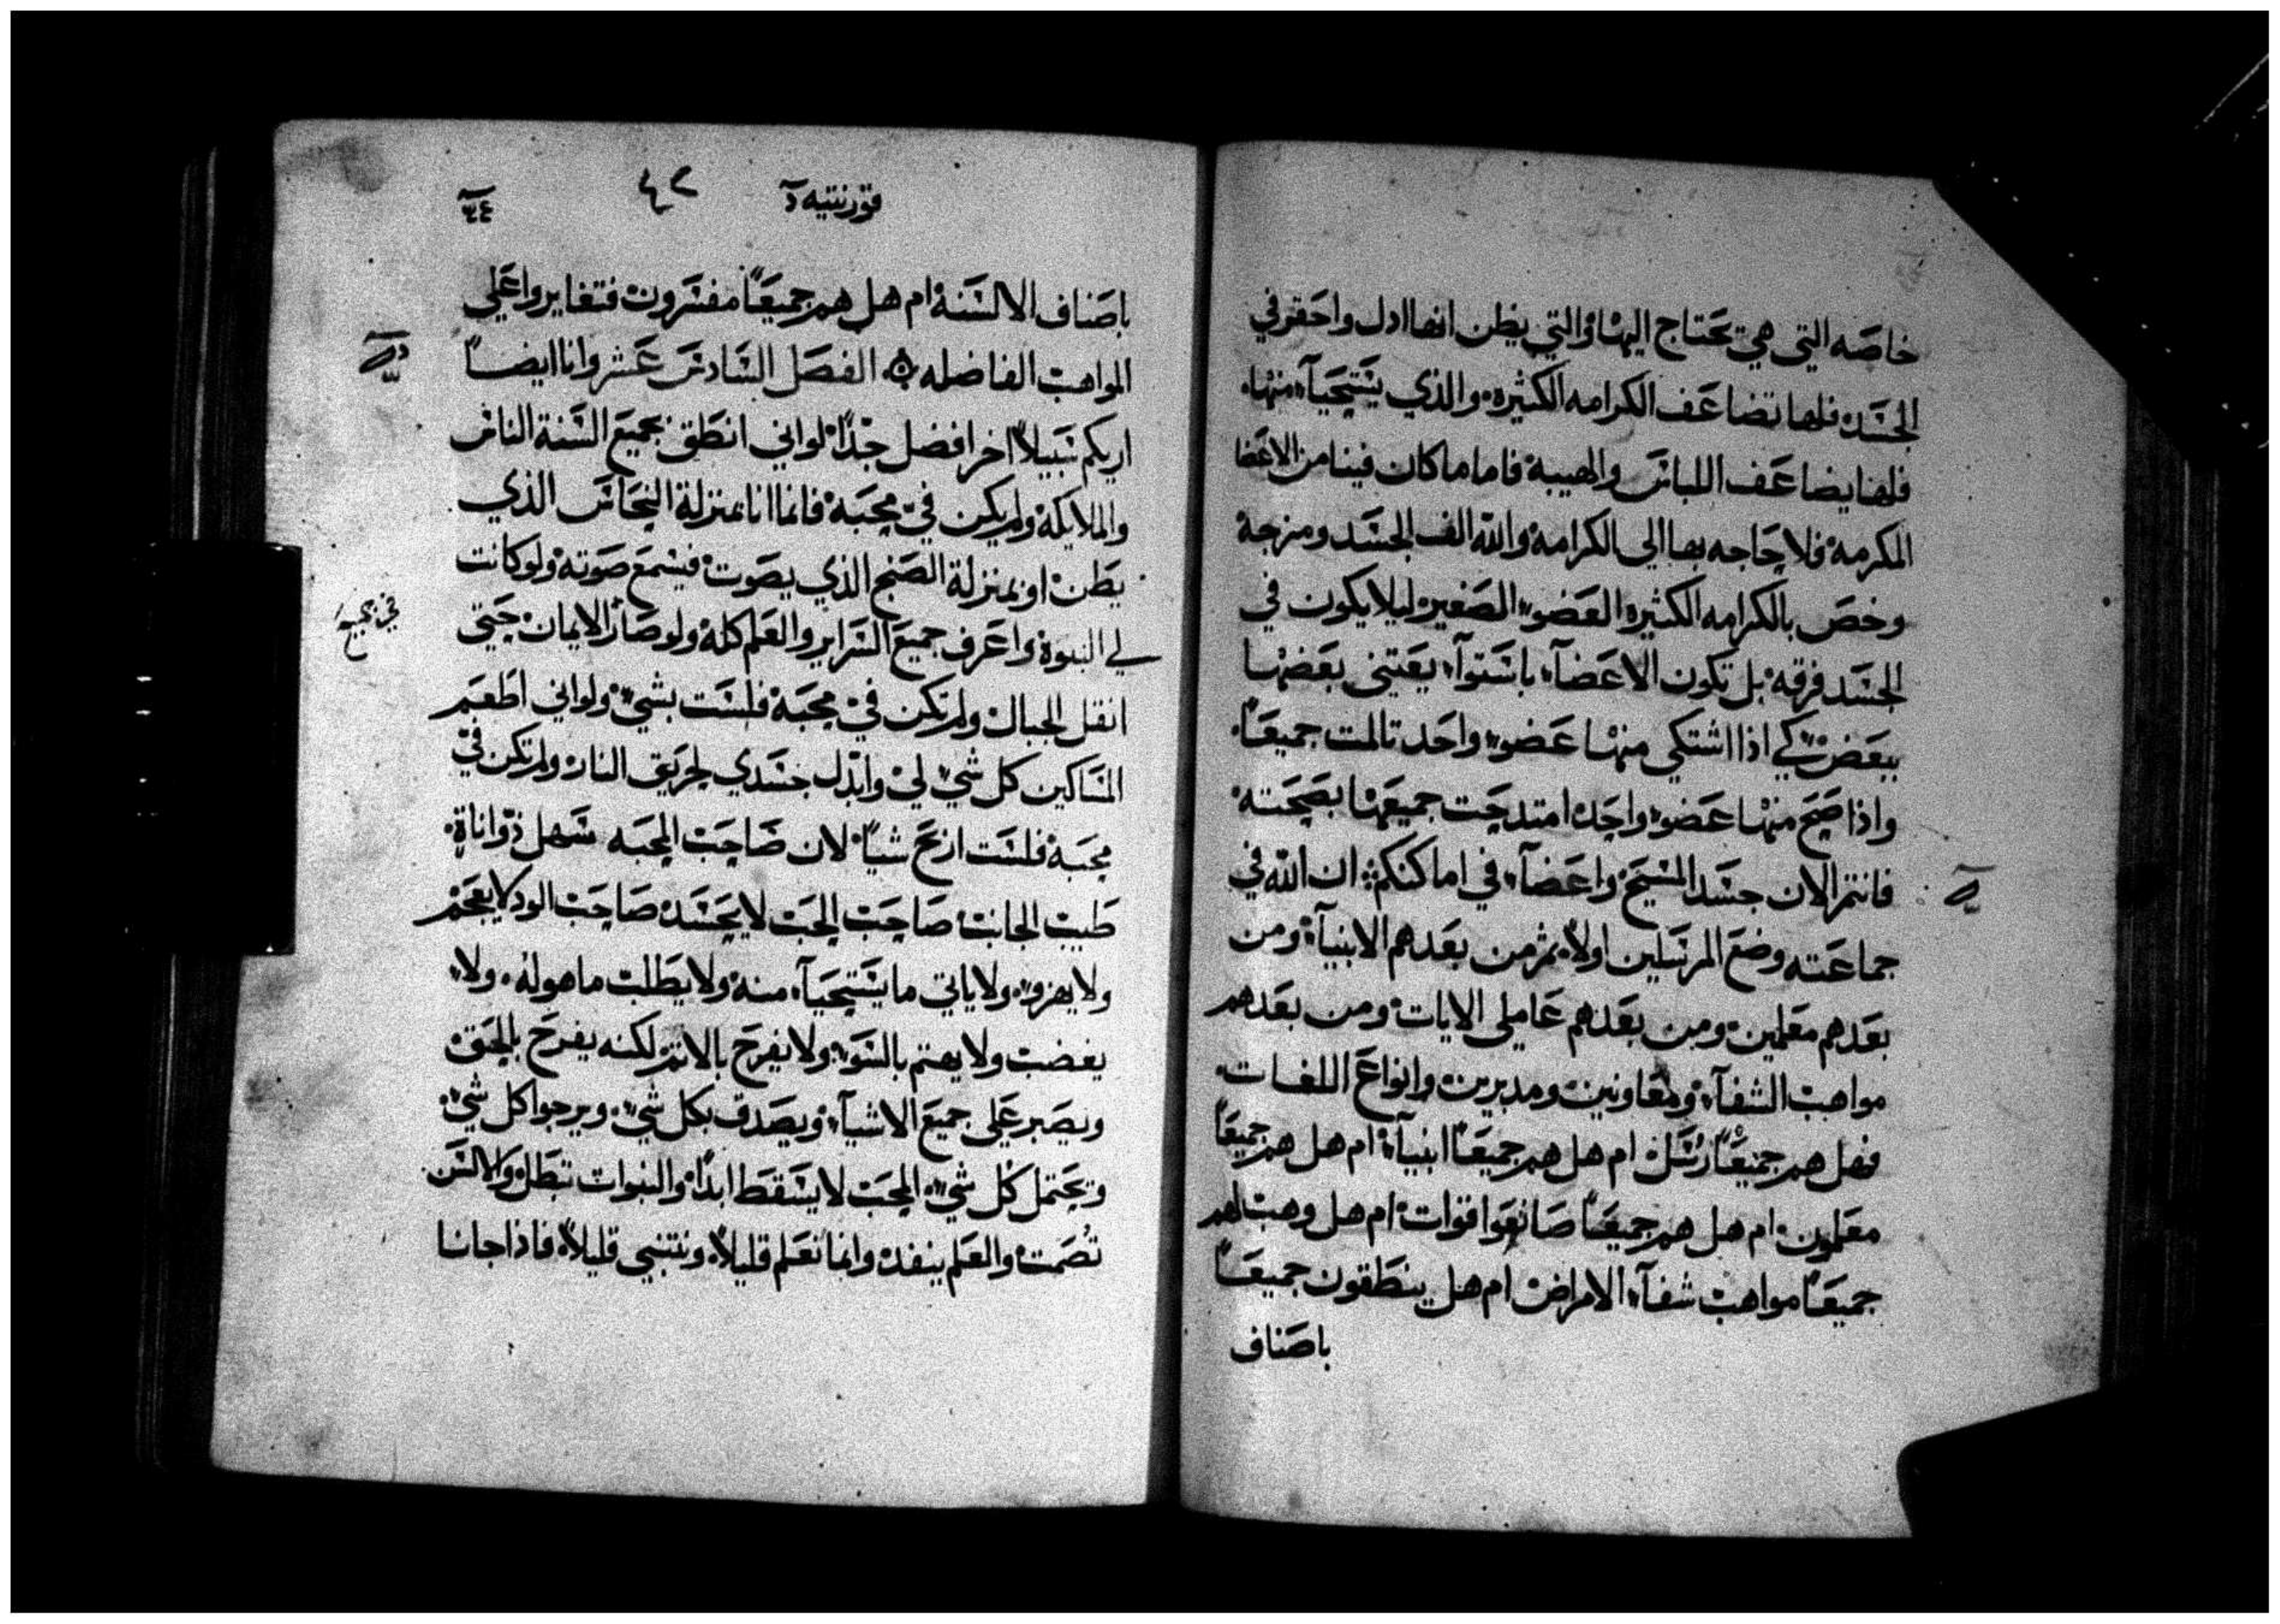 خاصه التي هي تحتاج اليها والتي يظن انها ادل واحقر في
الجسد فلها تضاعف الكرامه الكثيره والذي يستحيآ منها
فلها يضاعف اللباس والهيبة فاما ما كان فينا من الاعضا
المكرمة فلا حاجه بها الي الكرامة والله الف الجسد ومزجة
وخص بالكرامه الكثيره العضو الصغير ليلا يكون في
الجسد فرقه بل تكون الاعضآء باستوآء يعتني بعضها
ببعض كي اذا اشتكي منها عضو واحد تالمت جميعًا
واذا صحح منها عضو واحد امتدحت جميعها بصحته
فانتم الان جسد المسيح واعضآء في اماكنكم ان الله في
جماعته وضع المرسلين اولاً ثم من بعدهم الانبيآء ومن
بعدهم معلمين ومن بعدهم عاملي الايات ومن بعدهم
مواهب الشفآء ومعاونين ومدبرين وانواع اللغات
فهل هم جميعًا رسل ام هل هم جميعًا انبيآء ام هل هم جميعًا
معلمون ام هل هم جميعًا صانعوا قوات ام هل وهب لهم
جميعًا مواهب شفآء الامراض ام هل ينطقون جميعًا
باصناف
قورنتيه
٤٢
باصناف الالسنة ام هل هم جميعًا مفسرون فتغايروا علي
المواهب الفاضله الفصل السادس عشر وانا ايضًا
اريكم سبيلاً اخر افضل جدًا لو اني انطق بجميع السنة الناس
والملايكة ولم يكن في محبة فانما انا بمنزلة النحاس الذي
يطن او بمنزلة الصنج الذي يصوت فيسمع صوته ولو كانت
لي النبوة واعرف جميع السراير والعلم كله ولو صار الايمان حتي
انقل الجبال ولم تكن في محبة فلست بشي ولو اني اطعم
المساكين كل شي لي وابدل جسدي لحريق النار ولم تكن في
محبة فلست اربح شياً لان صاحب المحبه سهل ذو اناة
طيب الجانب صاحب الحب لا يحسد صاحب الود لا يعجم
ولا يهزو ولا ياتي ما يستحيآ منه ولا يطلب ما هو له ولا
يغضب ولا يهتم بالسو ولا يفرح بالاثم لكنه يفرح بالحق
ويصبر علي جميع الاشيآء ويصدق بكل شي ويرجوا كل شي
وتحتمل كل شي المحب لا يسقط ابدًا والنبوات تبطل والالسن
تُصمت والعلم ينفد وانما نعلم قليلاً ونتنبي قليلاً فاذا جانا